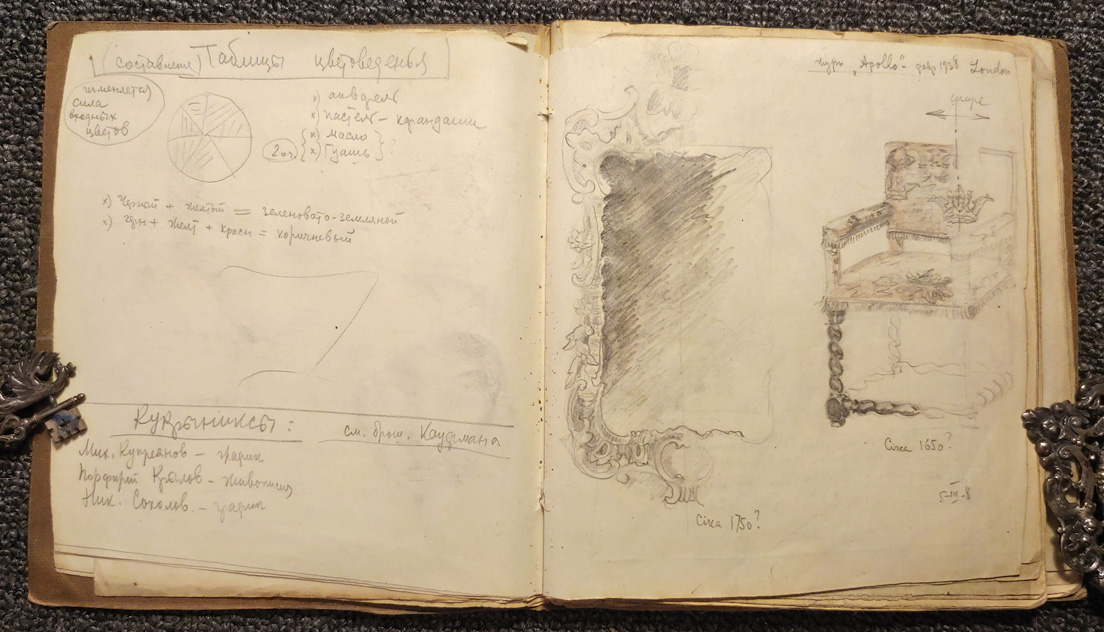 (составить) Таблицы цветоведенья
изменяется
сила
входных
цветов
x) акварель
x) пастель - карандаши
x) масло
x) гуашь ?
x) Черной + желтой = зеленовато-земляной
x) чрн + желт + красн = коричневый
Кукрыниксы:
см. брош. Кауфмана
Мих. Куприянов - график
Порфирий Крылов - живописец
Ник. Соколов - график
журн "Apollo" - февр 1928 London
Circa 1750?
Circa 1650?
5-III-8